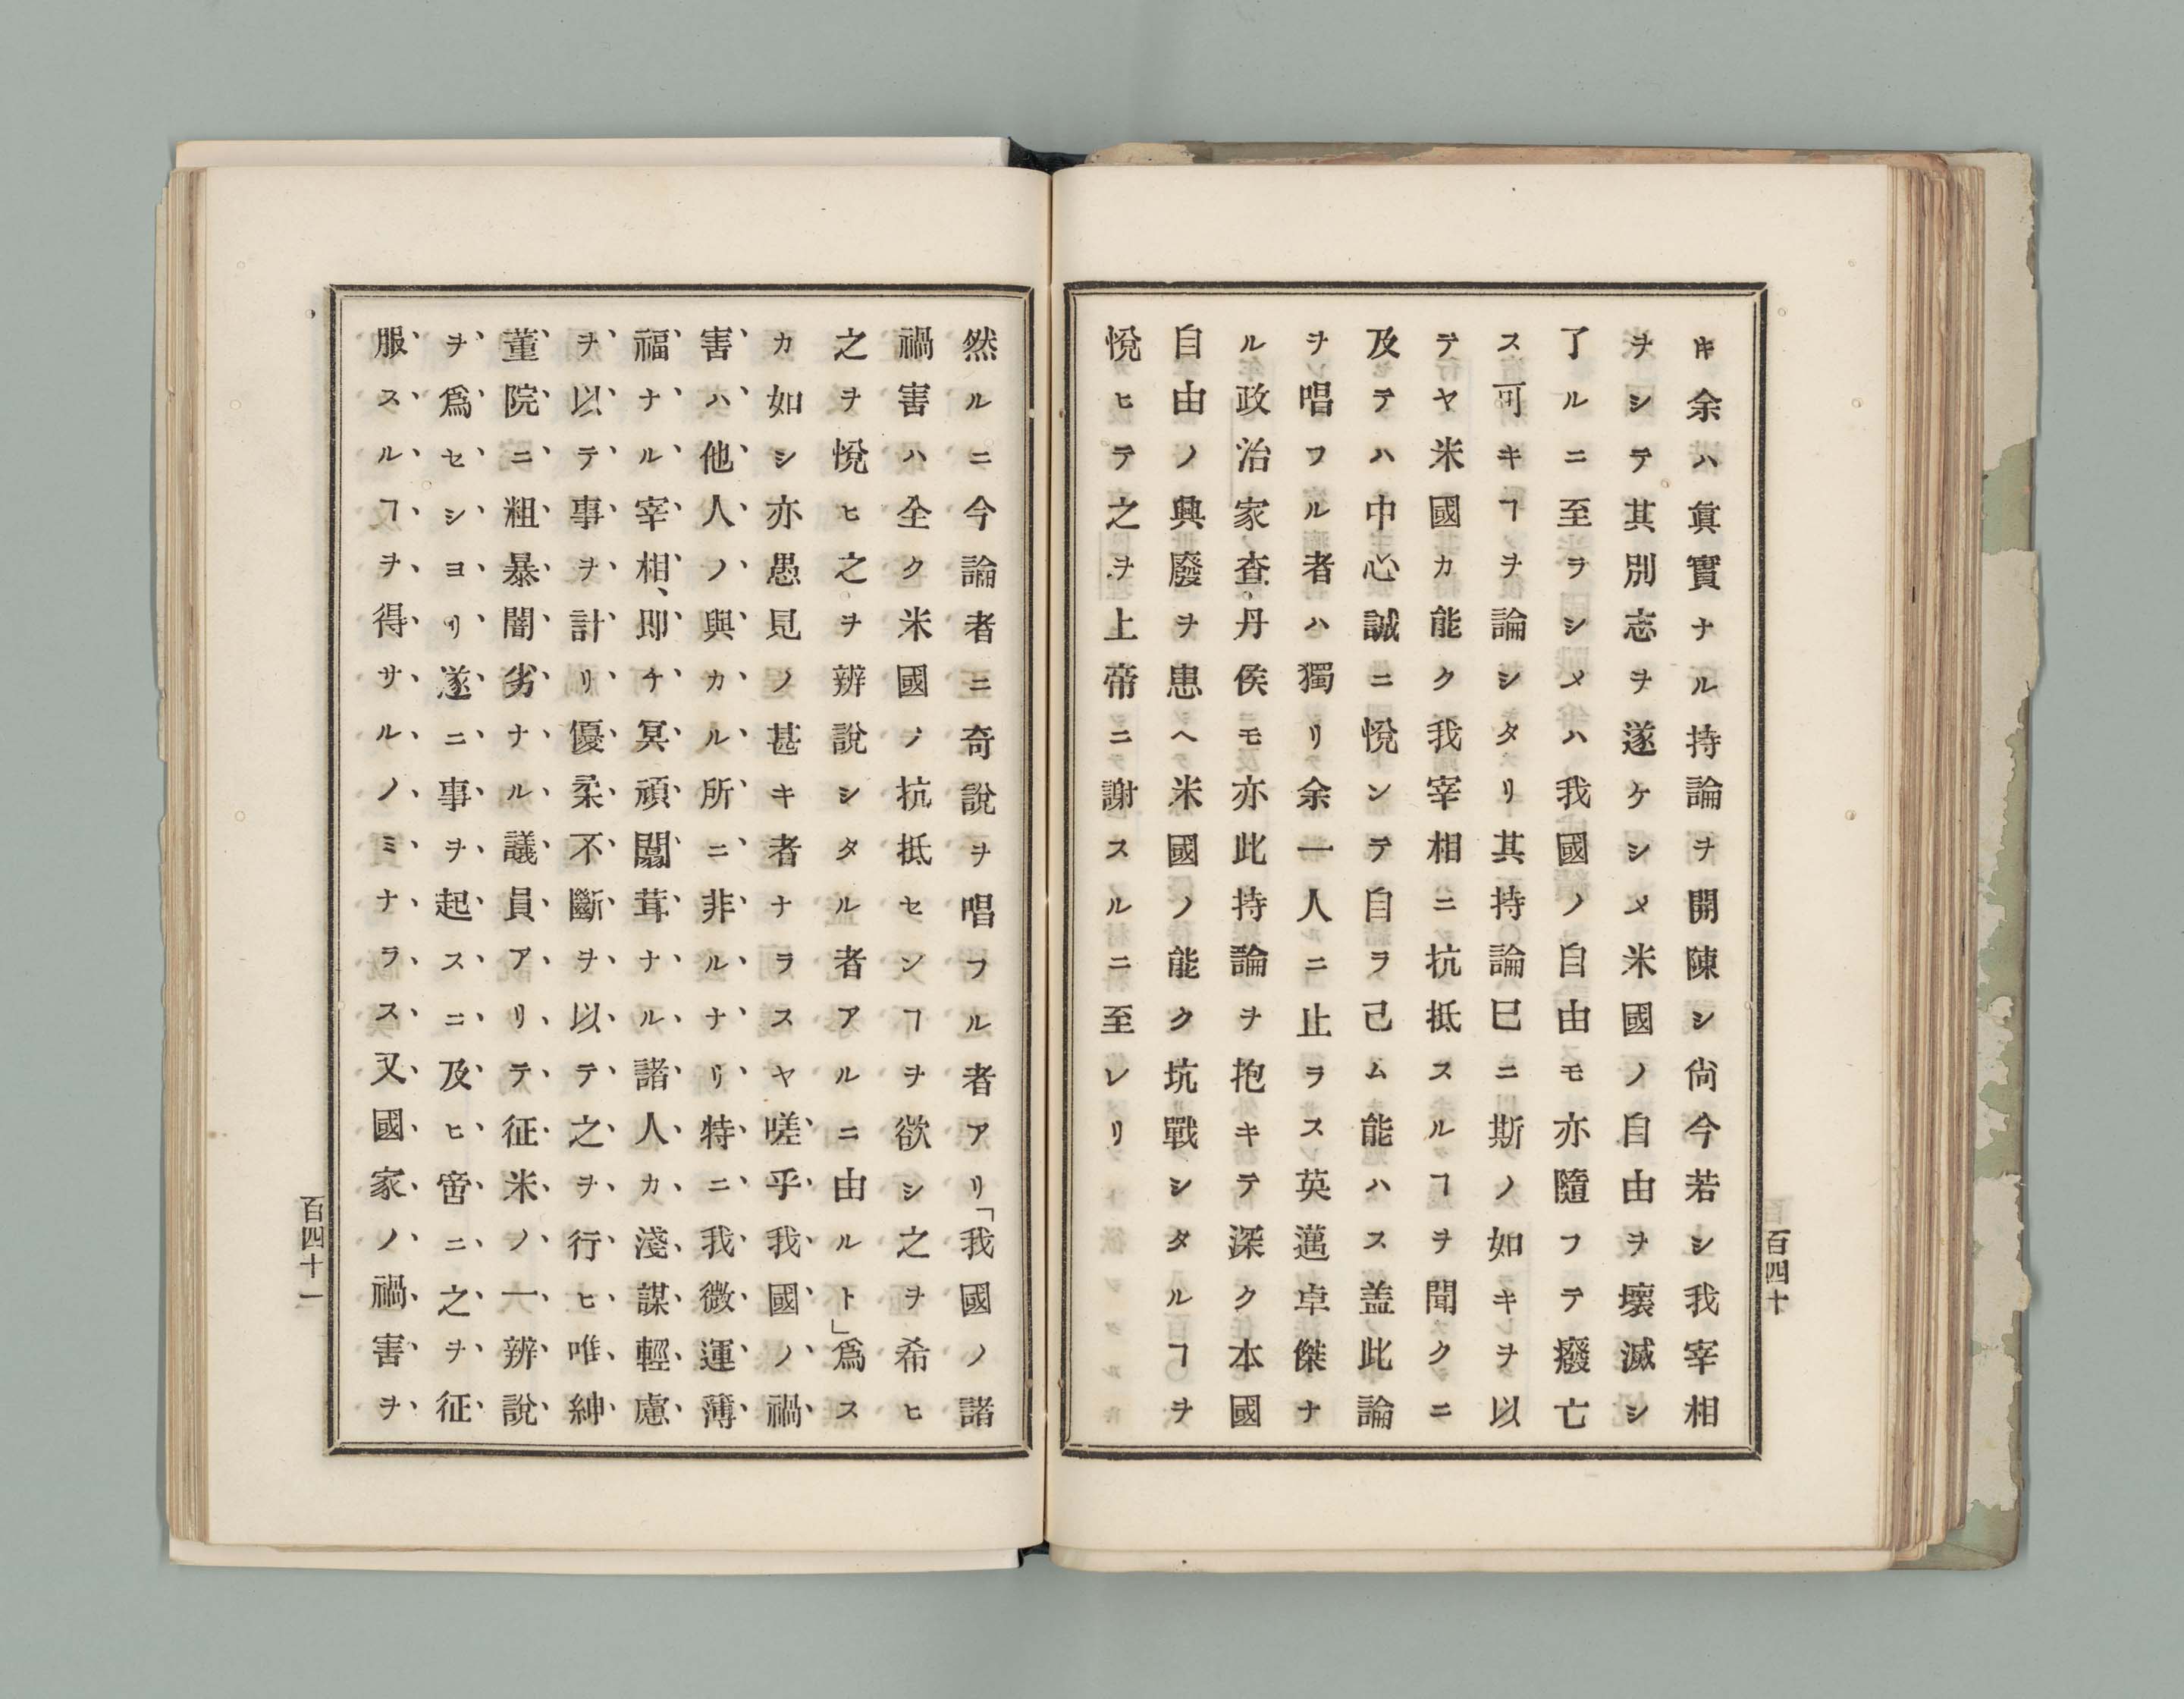 キ余ハ眞實ナル持論ヲ開陳シ尙今若シ我宰相
ヲシテ其別志ヲ遂ケシメ米國ノ自由ヲ壞滅シ
了ルニ至ラシメハ我國ノ自由モ亦隨フテ癈亡
ス可キヿヲ論シタリ其持論巳ニ斯ノ如キヲ以
テヤ米國カ能ク我宰相ニ抗抵スルヿヲ聞クニ
及テハ中心誠ニ悅ンテ自ラ己ム能ハス盖此論
ヲ唱フル者ハ獨リ余一人ニ止ラス英邁卓傑ナ
ル政治家査丹侯モ亦此持論ヲ抱キテ深ク本國
自由ノ興廢ヲ患ヘ米國ノ能ク坑戰シタルヿヲ
悅ヒテ之ヲ上帝ニ謝スルニ至レリ
百四十
然ルニ今論者ニ奇說ヲ唱フル者アリ「我國ノ諸
禍害ハ全ク米國ノ抗抵センヿヲ欲シ之ヲ希ヒ
之ヲ悅ヒ之ヲ辨說シタル者アルニ由ルト」爲ス
カ如シ亦愚見ノ甚キ者ナラスヤ嗟乎我國ノ禍
害ハ他人ノ與カル所ニ非ルナリ特ニ我微運薄
福ナル宰相、卽チ冥頑闒茸ナル諸人カ淺謀輕慮
ヲ以テ事ヲ計リ優柔不斷ヲ以テ之ヲ行ヒ唯紳
董院ニ粗暴闇劣ナル議員アリテ征米ノ一辨說
ヲ爲セシヨリ遂ニ事ヲ起スニ及ヒ啻ニ之ヲ征
服スルヿヲ得サルノミナラス又國家ノ禍害ヲ
百四十一